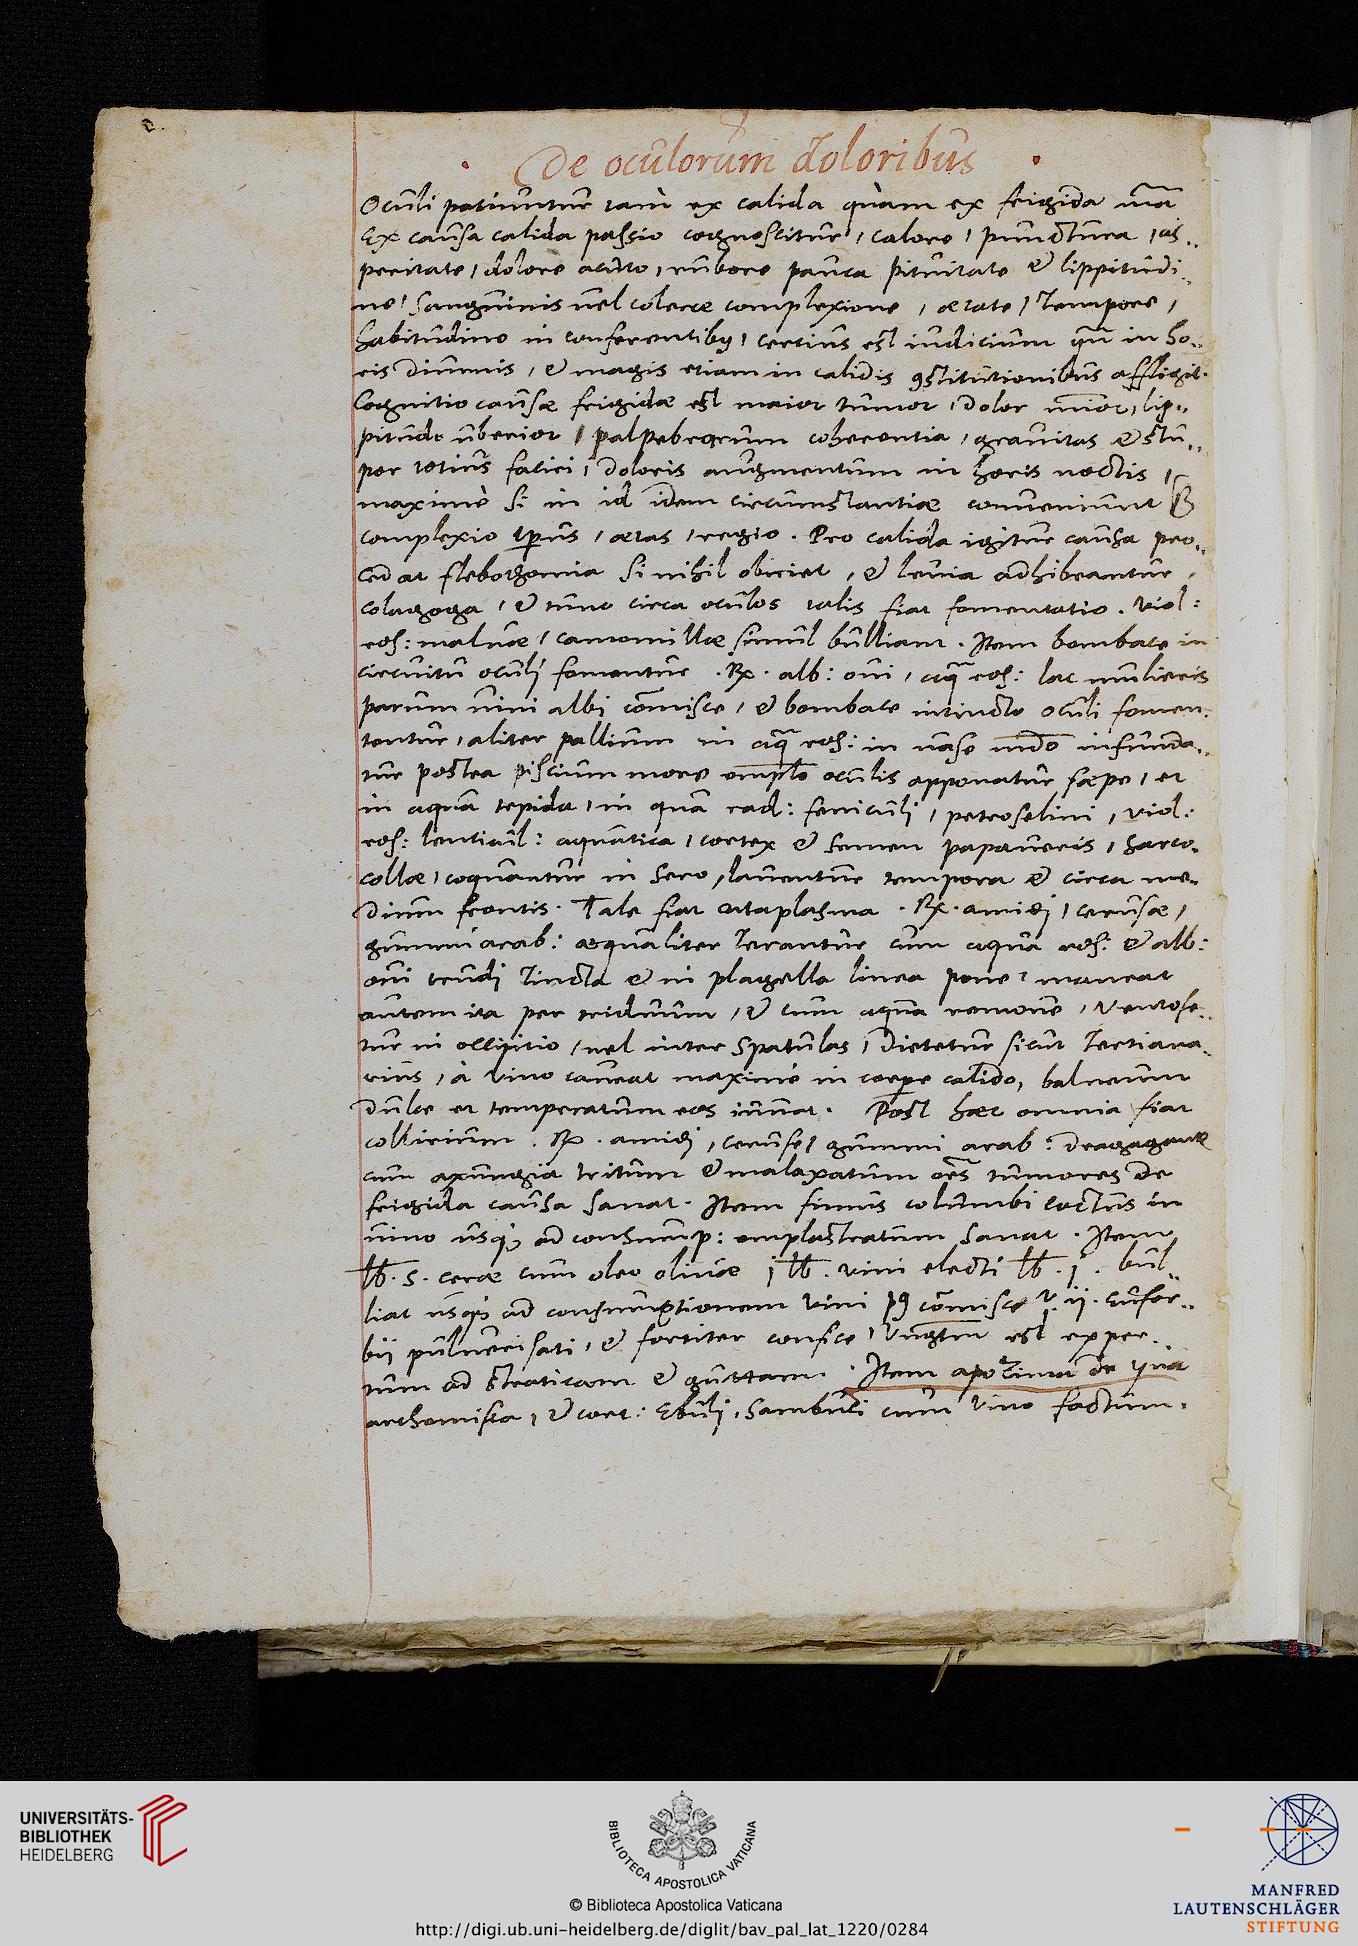 De oculorum doloribus
Oculi patiuntur tam ex calida quàm ex frigida ma͞
Ex causa calida passio cognoscitur, calore, punctura, as..
peritate, dolore acuto, rubore pauca pituitate & lippitudi..
ne, sanguinis uel colerae complexione, aetate, tempore,
habitudine in conferentibꝫ, certius est iudicium qn͞ in ho..
ris diurnis, & magis etiam in calidis ꝯstitutionibus affligit.
Cognitio causae frigidae est maior tumor, dolor minor, lip..
pitudo uberior, palpebrarum coherentia, grauitas & stu..
por totius faciei, doloris augmentum in horis noctis,
maximè si in id idem circumstantiae conueniunt
complexio tp͞us, aetas, regio. Pro calida igitur causa pro..
cedat flebothomia si nihil obiciet, & leuia adhibeantur,
colagoga, & tunc circa oculos talis fiat fomentatio. Viol:
ros: maluae, camomillae simul bulliant. Item bombace in
circuitu oculi fomentur. ℞. alb: oui, aqua ros: lac mulieris
parum uini albi com͞isce, & bombace intincto oculi fomen.
tentur, aliter pallium in aqua ros: in uase infunda..
tur postea piscium more oculis apponatur saepe, et
in aqua tepida, in qua rad: feniculi, petroselini, viol:
ros: lenticul: aquatica, cortex & semen papaueris, sarco.
collae, coquantur in sero, lauentur tempora & circa me..
dium frontis. Tale fiat cataplasma. ℞. amidi, cerusae,
gummi arab: aequaliter terantur cum aqua ros: & alb:
oui tincta & in plagella linea pone, maneat
autem ita per triduum, & cum aqua remoue, Ventose..
tur in occipitio, uel inter spatulas, dietetur sicut tertiana..
rius, à vino caueat maximè in corpore calido, balneum
dulce et temperatum eos iuuat. Post haec omnia fiat
collirium. ℞. amidi, cerusse, gummi arab: dragagant
cum axungia tritum & malaxatum oe͞s tumores de
frigida causa sanat. Item fimus columbi coctus in
uino usqꝫ ad consumpt: emplastratum sanat. Item
lb. s. cerae cum oleo oliuae j lb. vini electi lb. j. bul..
liat usqꝫ ad consumptionem vini com͞isce ij. eufor..
bij puluerisati, & fortiter confice, Vngtm͞ est exper.
tum ad sciaticam & guttam. Item apozima de
arthemisia, & cort: Ebuli, Sambuci cum vino factum.
UNIVERSITÄTS-
BIBLIOTHEK
HEIDELBERG
BIBLIOTECA APOSTOLICA VATICANA
© Biblioteca Apostolica Vaticana
http://digi.ub.uni-heidelberg.de/diglit/bav_pal_lat_1220/0284
MANFRED
LAUTENSCHLÄGER
STIFTUNG